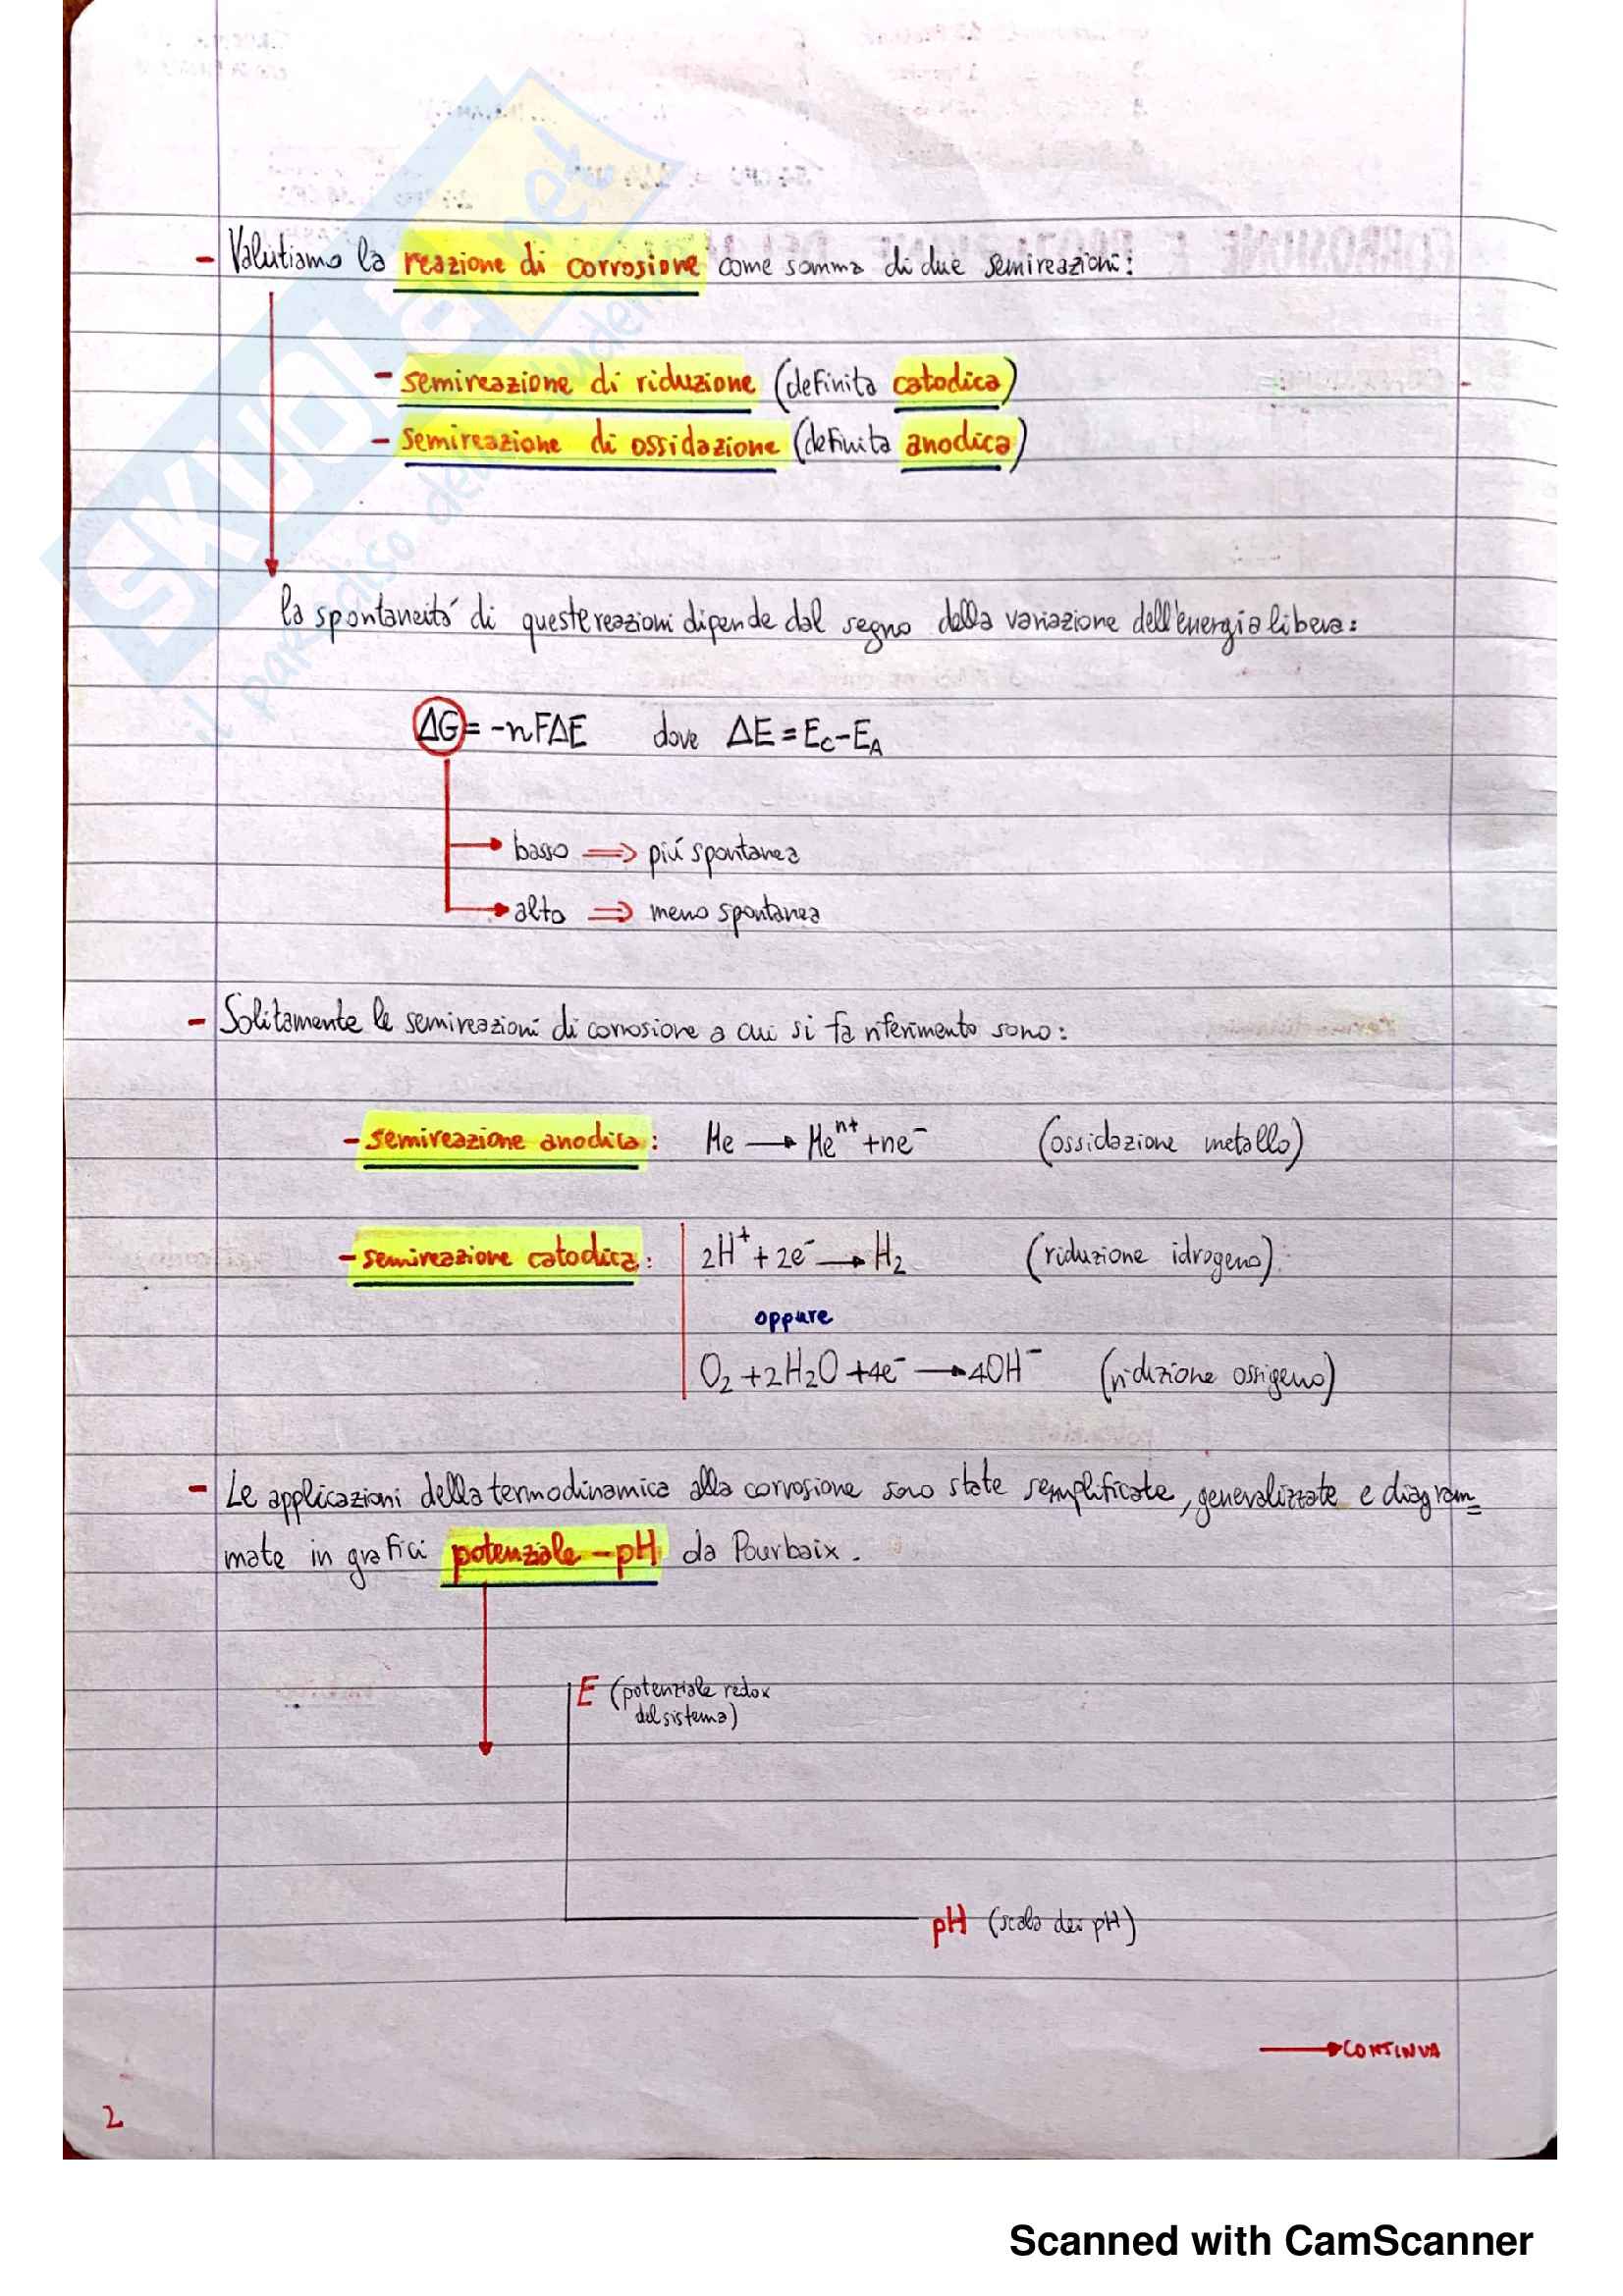 - Valutiamo la reazione di corrosione come somma di due semireazioni:
- semireazione di riduzione (definita catodica)
- semireazione di ossidazione (definita anodica)
la spontaneitá di queste reazioni dipende dal segno della variazione dell'energia libera:
ΔG = -nFΔE dove ΔE = E_C - E_A
basso ⇒ piú spontanea
alto ⇒ meno spontanea
- Solitamente le semireazioni di corrosione a cui si fa riferimento sono:
- semireazione anodica: Me → Me^n+ + ne^- (ossidazione metallo)
- semireazione catodica: 2H^+ + 2e^- → H₂ (riduzione idrogeno)
oppure
O₂ + 2H₂O + 4e^- → 4OH^- (riduzione ossigeno)
- Le applicazioni della termodinamica alla corrosione sono state semplificate, generalizzate e diagram=
mate in grafici potenziale - pH da Pourbaix.
E (potenziale redox
del sistema)
pH (scala dei pH)
→ CONTINUA
2
SKUOLA.net
il paradiso dello studente
Scanned with CamScanner